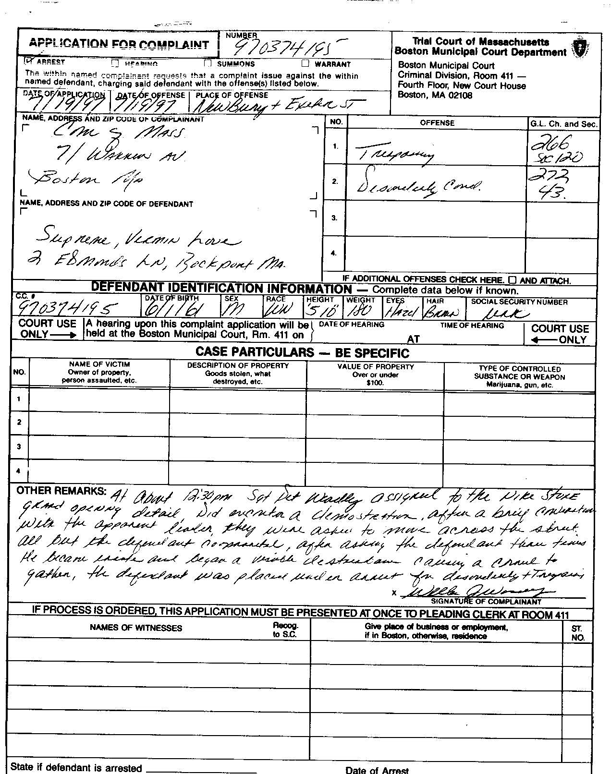 APPLICATION FOR COMPLAINT
NUMBER
970374195
Trial Court of Massachusetts
Boston Municipal Court Department
ARREST HEARING SUMMONS WARRANT
The within named complainant requests that a complaint issue against the within
named defendant, charging said defendant with the offense(s) listed below.
Boston Municipal Court
Criminal Division, Room 411 —
Fourth Floor, New Court House
Boston, MA 02108
DATE OF APPLICATION DATE OF OFFENSE PLACE OF OFFENSE
7/19/97 7/19/97 Newbury + Exeter ST
NAME, ADDRESS AND ZIP CODE OF COMPLAINANT
Com of Mass
71 Warren AV
Boston
NO. OFFENSE G.L. Ch. and Sec.
1. Trespassing 266 SC 120
2. Disorderly Cond. 272 43
3.
4.
NAME, ADDRESS AND ZIP CODE OF DEFENDANT
Supreme, Vermin Love
2 Edmonds LN, Rockport Ma.
IF ADDITIONAL OFFENSES CHECK HERE. AND ATTACH.
DEFENDANT IDENTIFICATION INFORMATION — Complete data below if known.
C.C. # DATE OF BIRTH SEX RACE HEIGHT WEIGHT EYES HAIR SOCIAL SECURITY NUMBER
970374195 6/1/61 M W 510 180 Hazel Brown UNK
COURT USE ONLY A hearing upon this complaint application will be held at the Boston Municipal Court, Rm. 411 on
DATE OF HEARING AT TIME OF HEARING COURT USE ONLY
CASE PARTICULARS — BE SPECIFIC
NO. NAME OF VICTIM
Owner of property,
person assaulted, etc.
DESCRIPTION OF PROPERTY
Goods stolen, what
destroyed, etc.
VALUE OF PROPERTY
Over or under
$100.
TYPE OF CONTROLLED
SUBSTANCE OR WEAPON
Marijuana, gun, etc.
1
2
3
4
OTHER REMARKS: At about 12:30pm Sgt Det assigned to the Nike Store
grand opening detail, Did encounter a demostration, after a brief conversation
with the apparent leader, they were asked to move across the street
all but the defendant, after asking the defendant three times
He became and began a causing a crowd to
gather, the defendant was placed under arrest for disorderly + Trespassing
X
SIGNATURE OF COMPLAINANT
IF PROCESS IS ORDERED, THIS APPLICATION MUST BE PRESENTED AT ONCE TO PLEADING CLERK AT ROOM 411
NAMES OF WITNESSES
Recog.
to S.C.
Give place of business or employment,
if in Boston, otherwise, residence
ST.
NO.
State if defendant is arrested
Date of Arrest